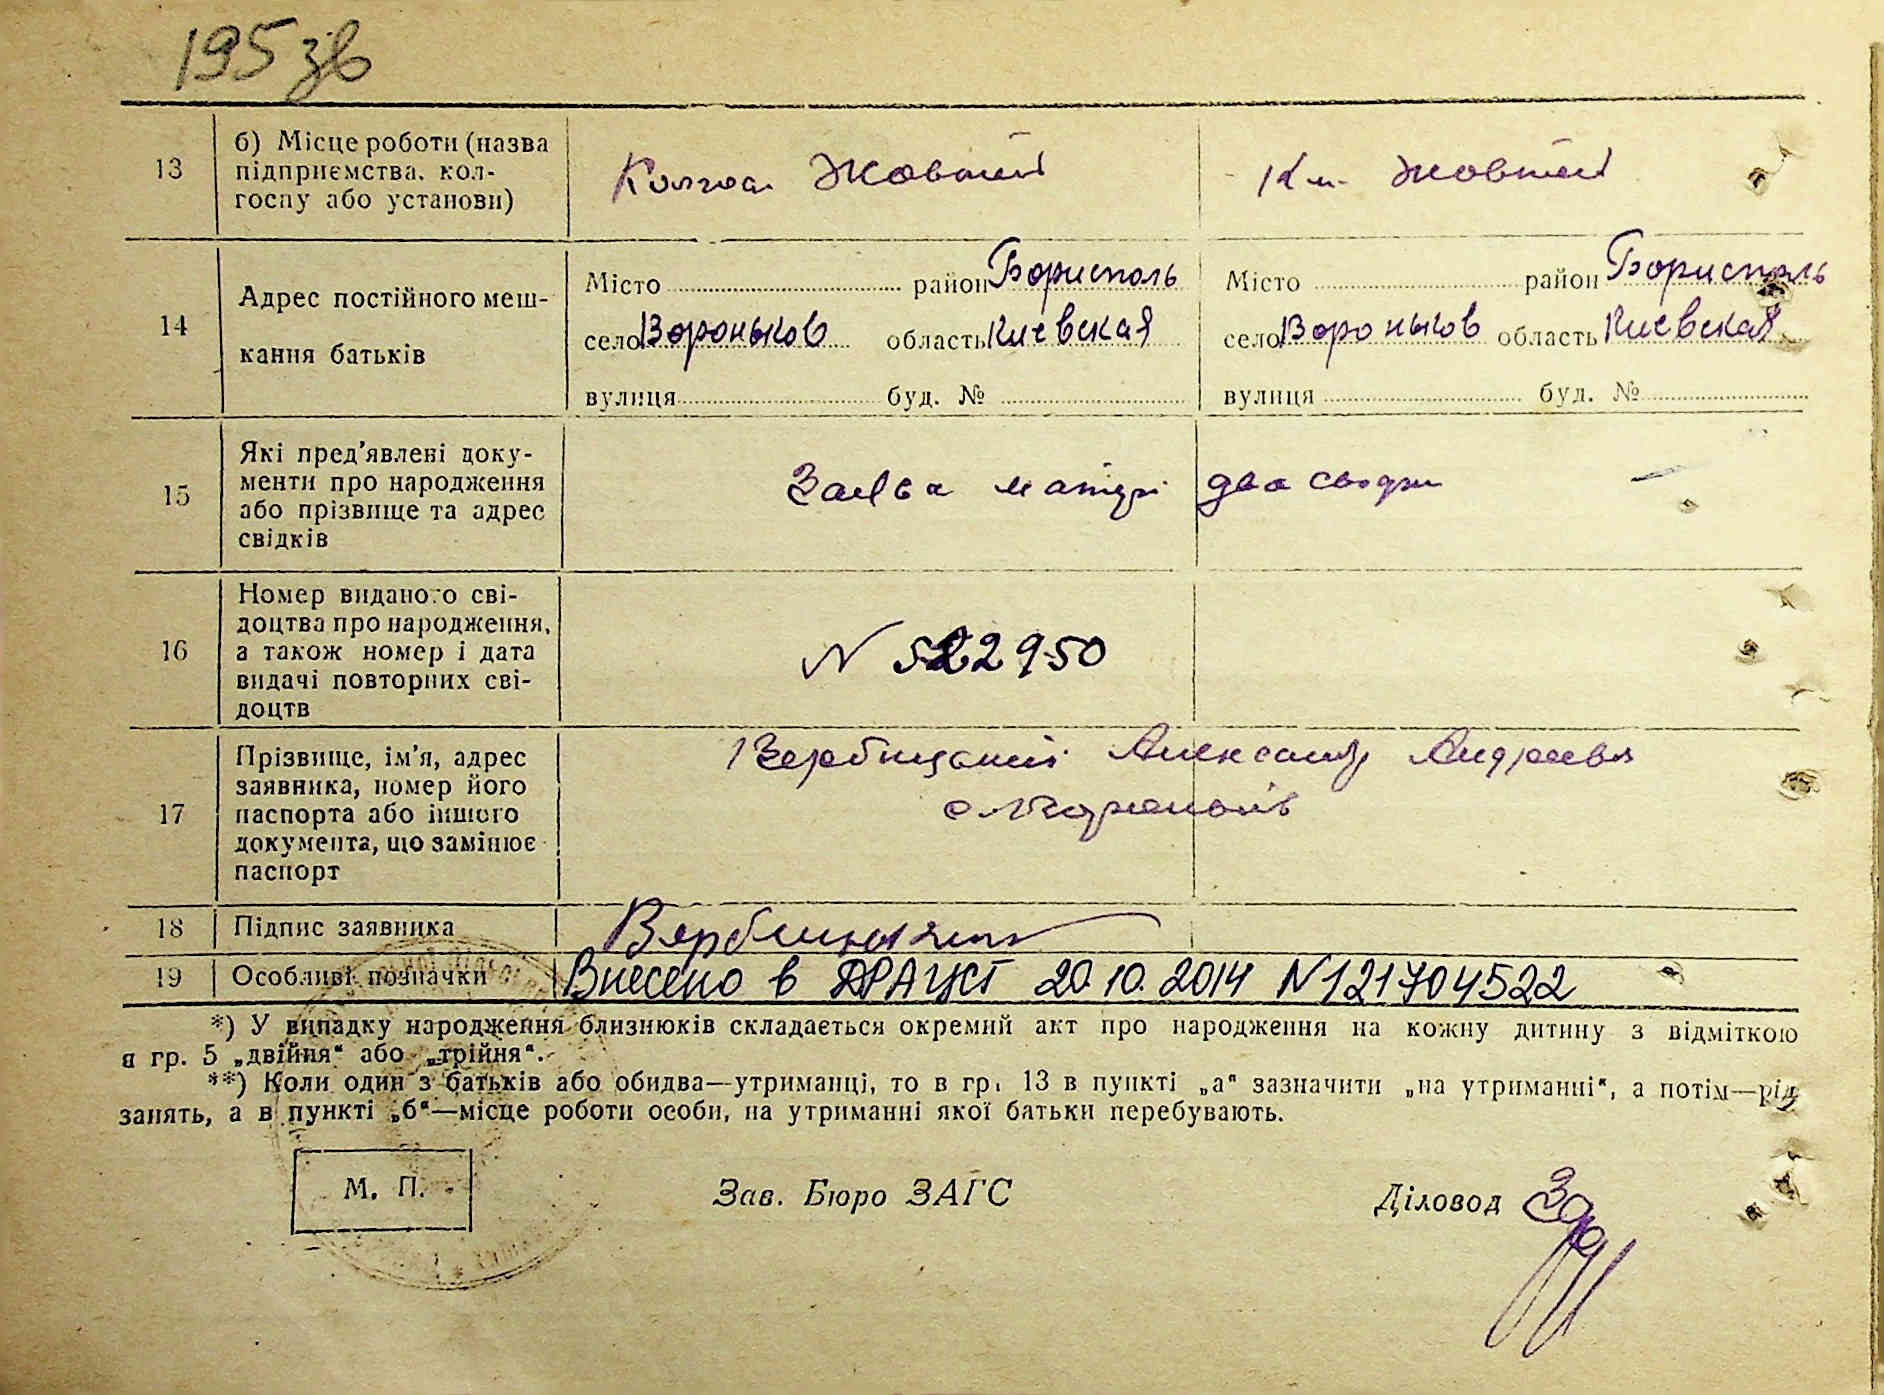 195 зв
13
б) Місце роботи (назва
підприємства, кол-
госпу або установи)
Колгосп Жовтень
Жовтень
14
Адрес постійного меш-
кання батьків
Місто район Борисполь
село Вороньков область Киевская
вулиця буд. №
Місто район Борисполь
село Вороньков область Киевская
вулиця буд. №
15
Які пред'явлені доку-
менти про народження
або прізвище та адрес
свідків
Заява матері два свідки
16
Номер виданого сві-
доцтва про народження,
а також номер і дата
видачі повторних сві-
доцтв
N 522950
17
Прізвище, ім'я, адрес
заявника, номер його
паспорта або іншого
документа, що замінює
паспорт
Вербицький Александр
18
Підпис заявника
19
Особливі позначки
Внесено в ДРАЦСГ 20.10.2014 N121704522
*) У випадку народження близнюків складається окремий акт про народження на кожну дитину з відміткою
в гр. 5 „двійня“ або „трійня“.
**) Коли один з батьків або обидва—утриманці, то в гр. 13 в пункті „а“ зазначити „на утриманні“, а потім—рід
занять, а в пункті „б“—місце роботи особи, на утриманні якої батьки перебувають.
М. П.
Зав. Бюро ЗАГС
Діловод